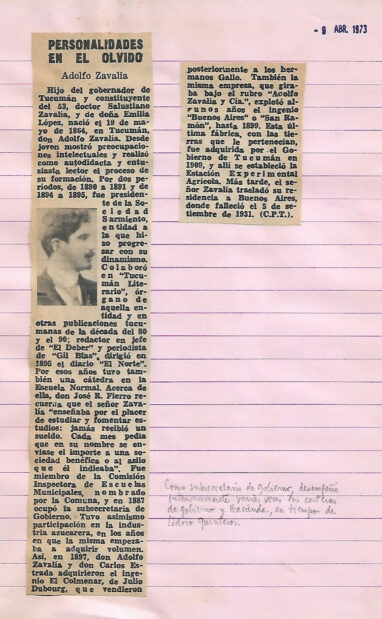 - 9 ABR. 1973
PERSONALIDADES
EN EL OLVIDO
Adolfo Zavalía
Hijo del gobernador de
Tucumán y constituyente
del 53, doctor Salustiano
Zavalía, y de doña Emilia
López, nació el 19 de ma-
yo de 1864, en Tucumán,
don Adolfo Zavalía. Desde
joven mostró preocupacio-
nes intelectuales y realizó
como autodidacta y entu-
siasta lector el proceso de
su formación. Por dos pe-
ríodos, de 1890 a 1891 y de
1894 a 1895, fue presiden-
te de la So-
ciedad
Sarmiento,
entidad a
la que hi-
zo progre-
sar con su
dinamismo.
Colaboró
en "Tucu-
mán Lite-
rario", ór-
gano de
aquella en-
tidad y en
otras publicaciones tucu-
manas de la década del 80
y el 90; redactor en jefe
de "El Deber" y periodista
de "Gil Blas", dirigió en
1895 el diario "El Norte".
Por esos años tuvo tam-
bién una cátedra en la
Escuela Normal. Acerca de
ella, don José R. Fierro re-
cuerda que el señor Zava-
lía "enseñaba por el placer
de estudiar y fomentar es-
tudios: jamás recibió un
sueldo. Cada mes pedía
que en su nombre se en-
viase el importe a una so-
ciedad benéfica o al asilo
que él indicaba". Fue
miembro de la Comisión
Inspectora de Escuelas
Municipales, nombrado
por la Comuna, y en 1887
ocupó la subsecretaría de
Gobierno. Tuvo asimismo
participación en la indus-
tria azucarera, en los años
en que la misma empeza-
ba a adquirir volumen.
Así, en 1897, don Adolfo
Zavalía y don Carlos Es-
trada adquirieron el inge-
nio El Colmenar, de Julio
Dubourg, que vendieron
posteriormente a los her-
manos Gallo. También la
misma empresa, que gira-
ba bajo el rubro "Adolfo
Zavalía y Cía.", explotó al-
gunos años el ingenio
"Buenos Aires" o "San Ra-
món", hasta 1899. Esta úl-
tima fábrica, con las tie-
rras que le pertenecían,
fue adquirida por el Go-
bierno de Tucumán en
1909, y allí se estableció la
Estación Experimental
Agrícola. Más tarde, el se-
ñor Zavalía trasladó su re-
sidencia a Buenos Aires,
donde falleció el 5 de se-
tiembre de 1931. (C.P.T.).
Como subsecretario de gobierno, desempeñó
interinamente varias veces las carteras
de gobierno y Hacienda, en tiempos de
Lídoro Quinteros.